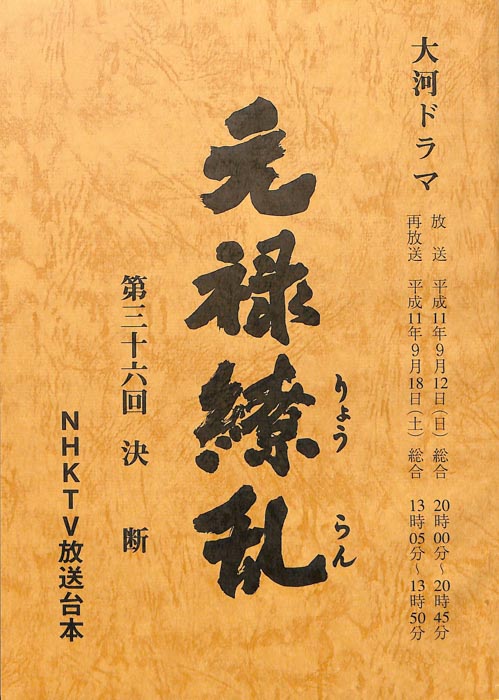 大河ドラマ
放送 平成11年9月12日(日) 総合 20時00分~20時45分
再放送 平成11年9月18日(土) 総合 13時05分~13時50分
元禄繚乱
りょう らん
第三十六回 決断
NHKTV放送台本